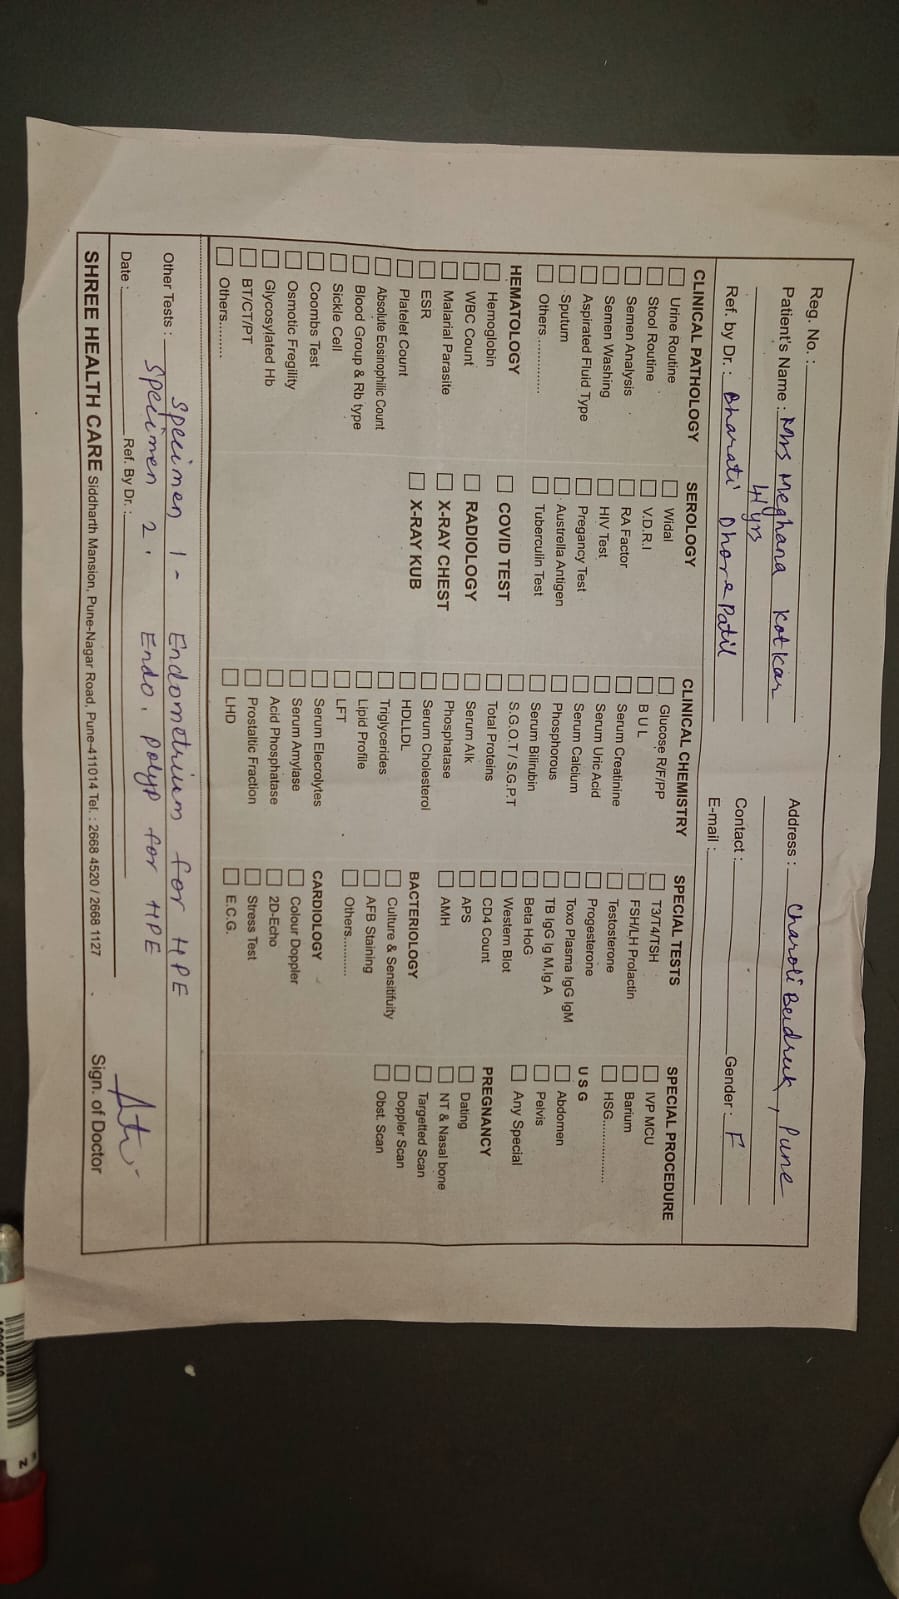 Reg. No. :
Patient's Name : Mrs Meghana Kotkar
41 yrs
Ref. by Dr. : Bharati Dhore Patil
Address : Charoli Budruk, Pune
Contact :
Gender : F
E-mail :
CLINICAL PATHOLOGY
Urine Routine
Stool Routine
Semen Analysis
Semen Washing
Aspirated Fluid Type
Sputum
Others............
HEMATOLOGY
Hemoglobin
WBC Count
Malarial Parasite
ESR
Platelet Count
Absolute Eosinophilic Count
Blood Group & Rb type
Sickle Cell
Coombs Test
Osmotic Fregility
Glycosylated Hb
BT/CT/PT
Others........
SEROLOGY
Widal
V.D.R.I
RA Factor
HIV Test
Pregancy Test
Austrella Antigen
Tuberculin Test
COVID TEST
RADIOLOGY
X-RAY CHEST
X-RAY KUB
CLINICAL CHEMISTRY
Glucose R/F/PP
B U L
Serum Creatinine
Serum Uric Acid
Serum Calcium
Phosphorous
Serum Bilinubin
S.G.O.T / S.G.P.T
Total Proteins
Serum Alk
Phosphatase
Serum Cholesterol
HDLLDL
Triglycerides
Lipid Profile
LFT
Serum Elecrolytes
Serum Amylase
Acid Phosphatase
Prostaltic Fraction
LHD
SPECIAL TESTS
T3/T4/TSH
FSH/LH Prolactin
Testosterone
Progesterone
Toxo Plasma IgG IgM
TB IgG Ig M,Ig A
Beta HoG
Western Blot
CD4 Count
APS
AMH
BACTERIOLOGY
Culture & Sensitifuity
AFB Staining
Others............
CARDIOLOGY
Colour Doppler
2D-Echo
Stress Test
E.C.G.
SPECIAL PROCEDURE
IVP MCU
Barium
HSG..................
U S G
Abdomen
Pelvis
Any Special
PREGNANCY
Dating
NT & Nasal bone
Targetted Scan
Doppler Scan
Obst. Scan
Other Tests : Specimen 1 - Endometrium for HPE
Specimen 2. Endo. polyp for HPE
Date : Ref. By Dr. :
SHREE HEALTH CARE Siddharth Mansion, Pune-Nagar Road, Pune-411014 Tel. : 2668 4520 / 2668 1127
Sign. of Doctor